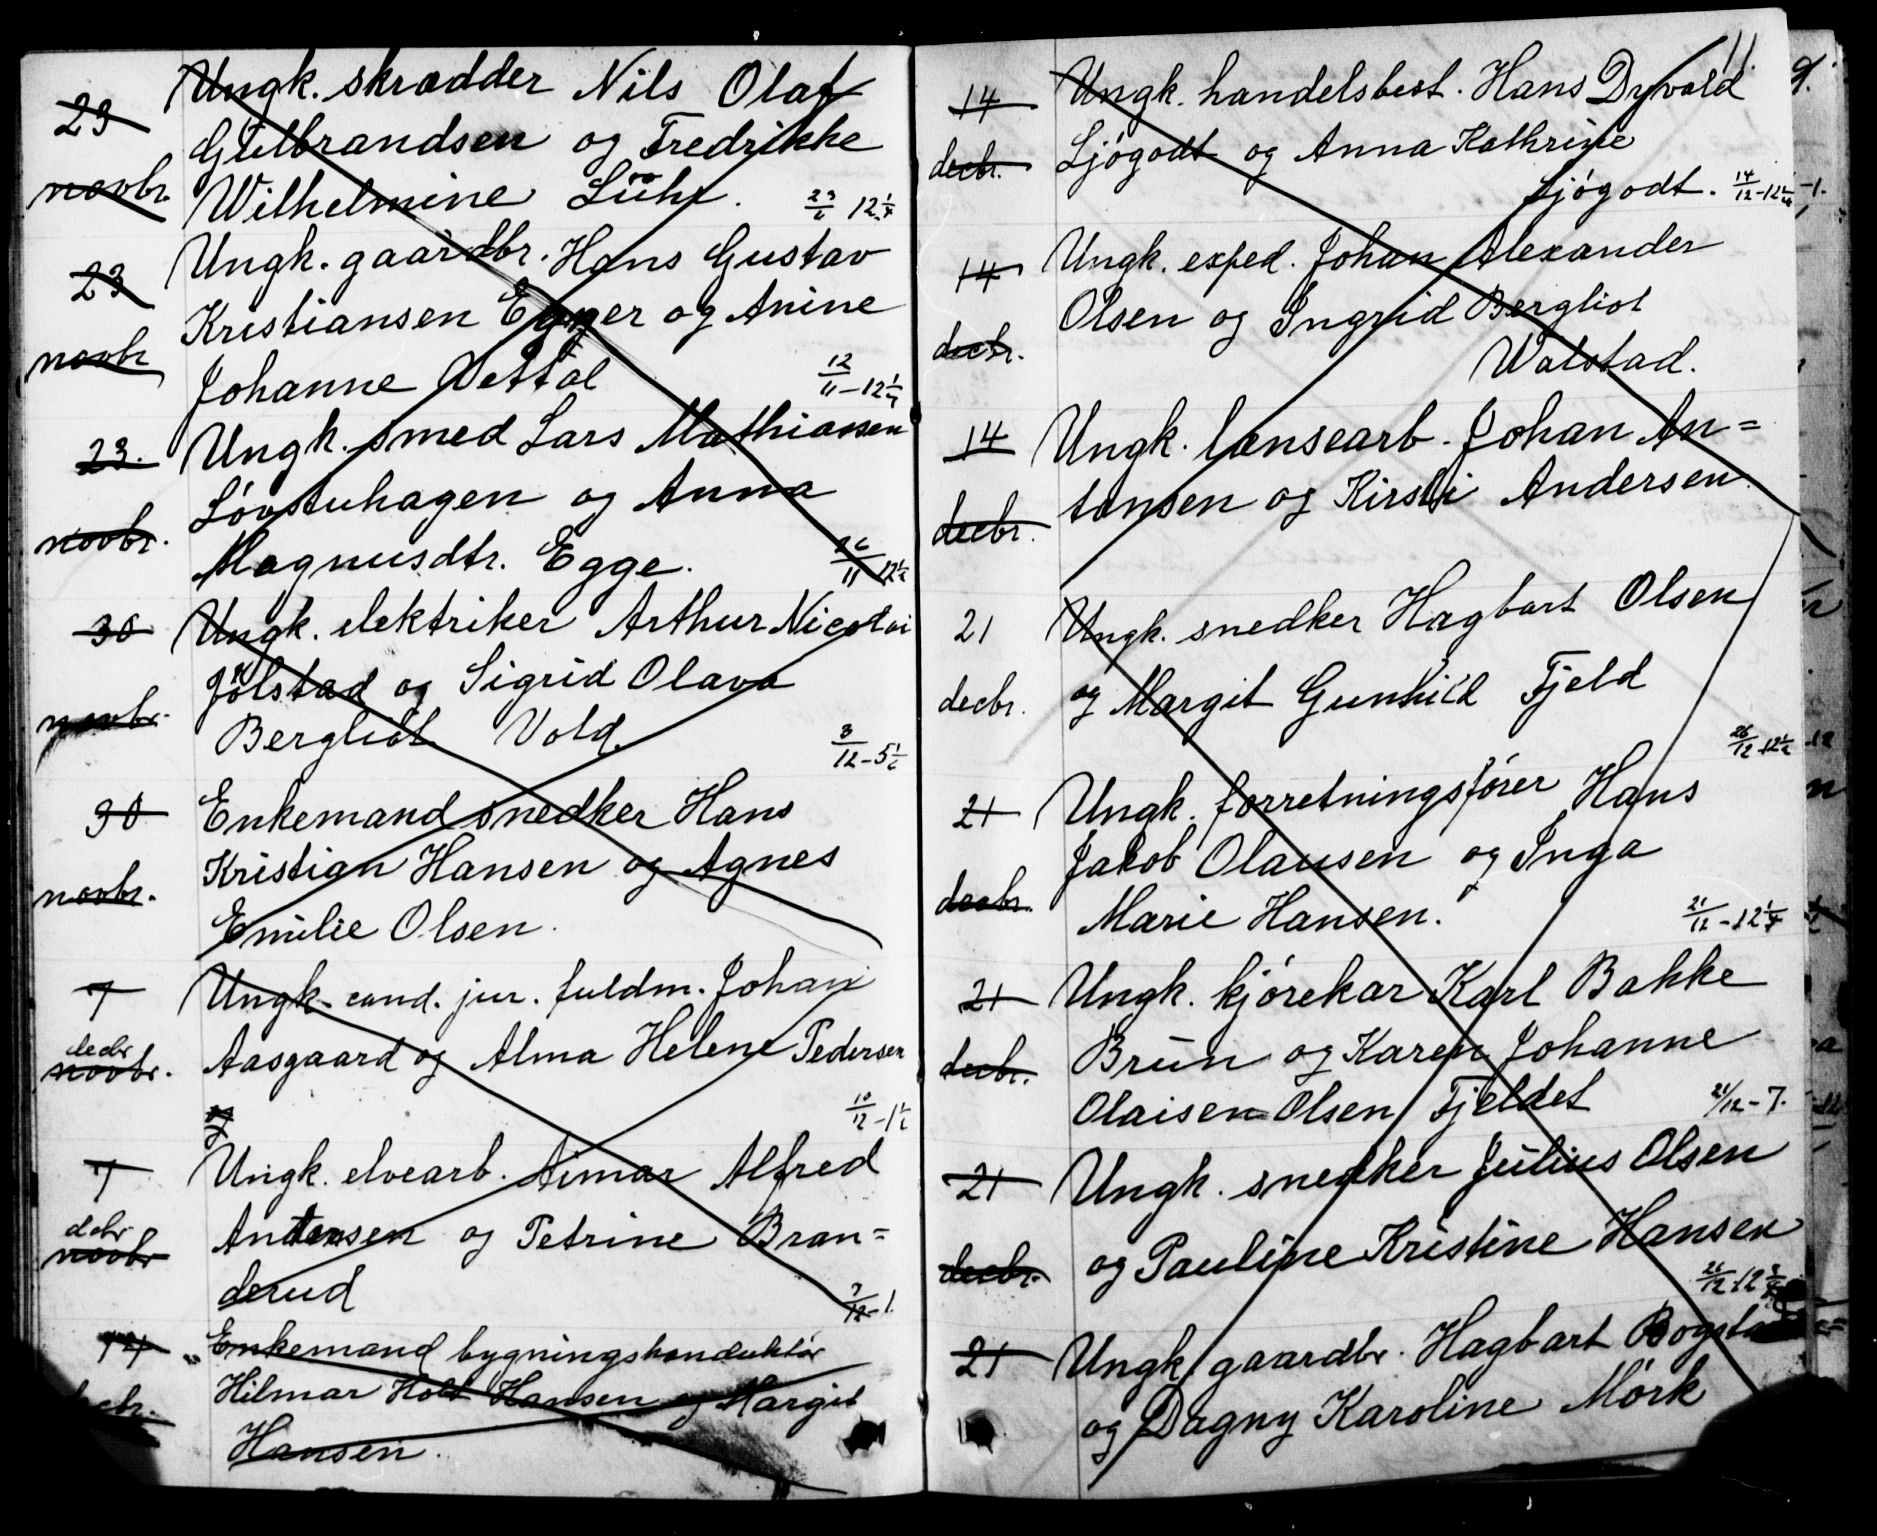 23 Ungk. skrædder Nils Olaf
Gulbrandsen og Fredrikke
novbr. Wilhelmine Lühr.
23 Ungk. gaardbr. Hans Gustav
Kristiansen Egner og Anine
novbr Johanne Vettal 12/11 - 12 1/4
23. Ungk. smed Lars Mathiassen
Lövstuhagen og Anna
novbr. Magnusdtr. Egge. 12 1/2
30 Ungk. elektriker Arthur Nicolai
Jölstad og Sigrid Olava
novbr. Bergliot Vold. 3/12 - 5 1/2
30 Enkemand snedker Hans
Kristian Hansen og Agnes
novbr. Emilie Olsen.
7 Ungk. cand. jur. fuldm. Johan
decbr
novbr. Aasgaard og Alma Helene Pedersen
10/12 - 1 1/2
7 Ungk. elvearb. Aimar Alfred
decbr
novbr Antonsen og Petrine Bran=
derud 7/12 - 1.
14 Enkemand bygningskonduktör
Hilmar Holt Hansen og Margit
decbr. Hansen.
11.
14 Ungk. handelsbest. Hans Dyvold
decbr. Ljögodt og Anna Kathrine
Ljögodt. 14/12 - 12 1/4
14 Ungk. exped. Johan Alexander
Olsen og Ingrid Bergliot
decbr. Walstad.
14 Ungk. lensearb. Johan An=
decbr. tonsen og Kirsti Andersen
21 Ungk. snedker Hagbart Olsen
decbr. og Margit Gunhild Fjeld
26/12 - 12 1/2
21 Ungk. forretningsförer Hans
Jakob Olausen og Inga
decbr. Marie Hansen. 21/12 - 12 1/4
21 Ungk. kjörekar Karl Bakke
decbr. Brun og Karen Johanne
Olaisen Olsen Fjeldet 21/12 - 7.
21 Ungk. snedker Julius Olsen
decbr. og Pauline Kristine Hansen
26/12 - 12
21 Ungk. gaardbr. Hagbart
og Dagny Karoline Mörk